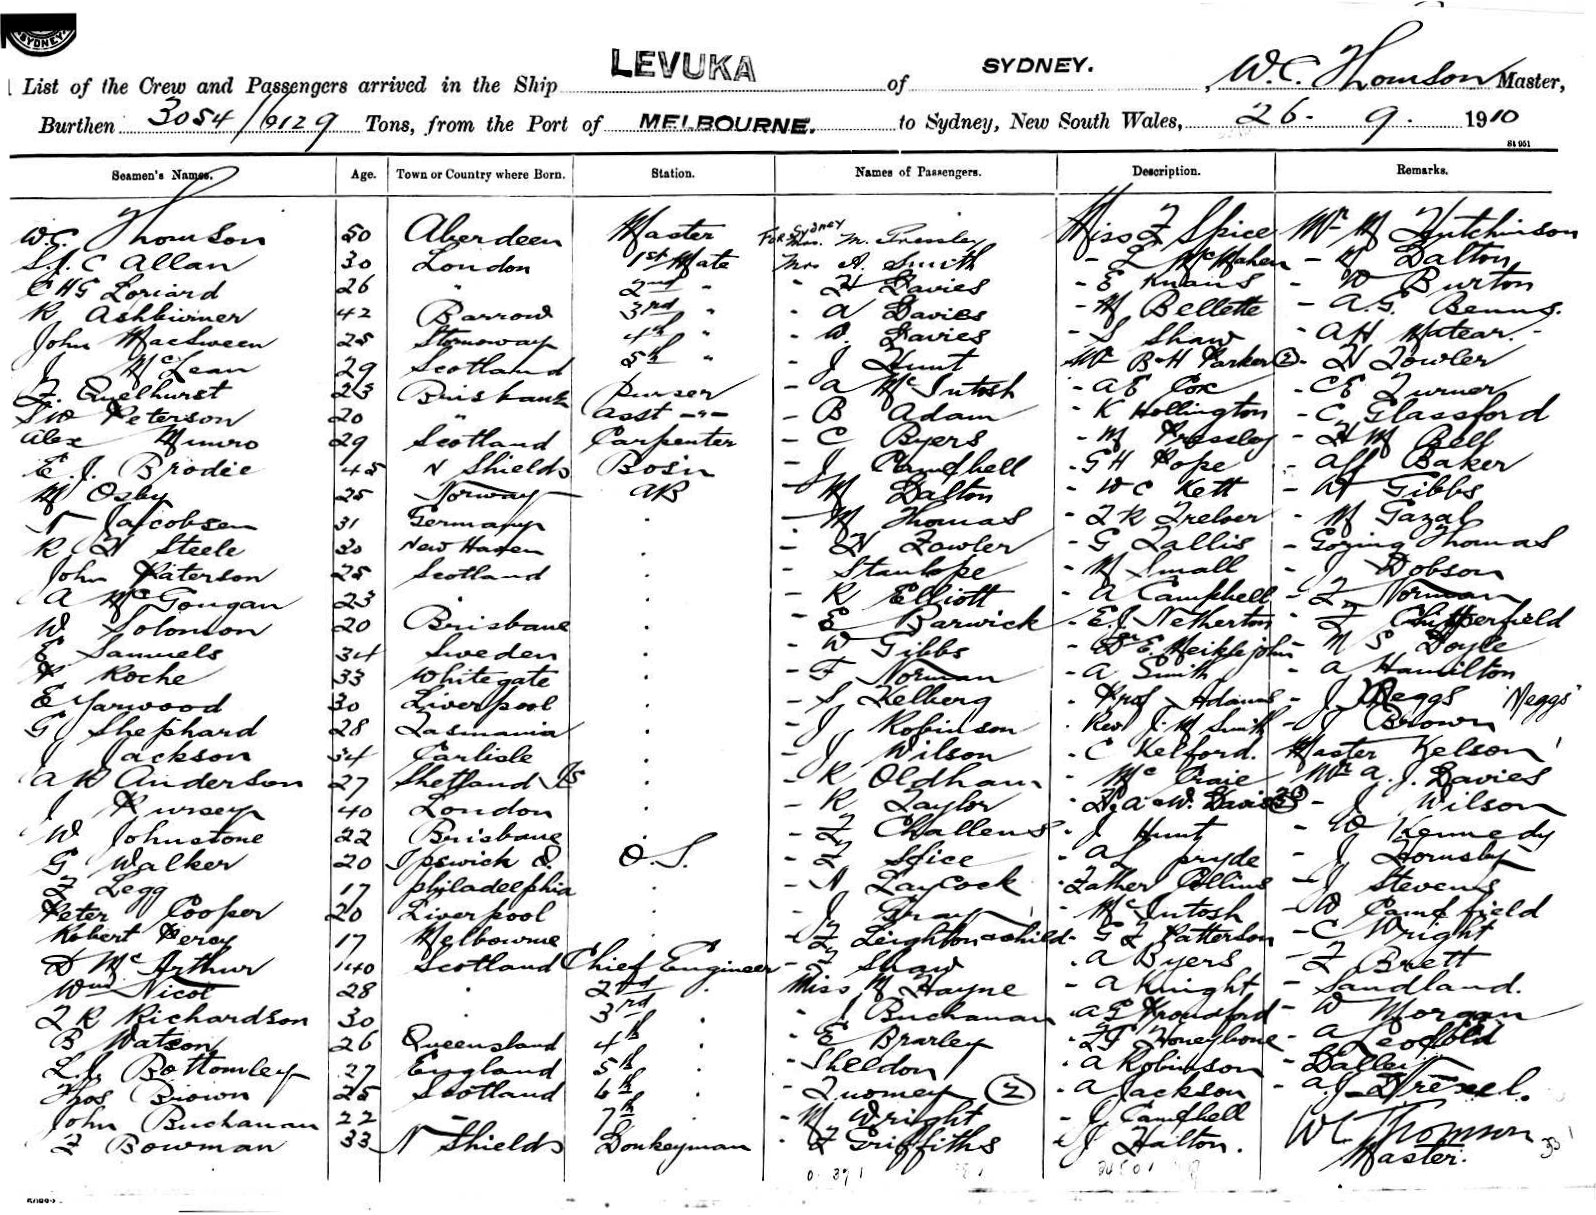 SYDNEY
List of the Crew and Passengers arrived in the Ship LEVUKA of SYDNEY. , W.C. Thomson Master,
Burthen 3054/6129 Tons, from the Port of MELBOURNE. to Sydney, New South Wales, 26. 9. 1910
Seamen's Names. Age. Town or Country where Born. Station. Names of Passengers. Description. Remarks.
W.C. Thomson 50 Aberdeen Master For Sydney Mrs. M. Pressley Miss F Spice Mr M Hutchinson
S.J. C Allan 30 London 1st Mate Mrs A. Smith - L McMahen - W Dalton
C H G Loriard 26 " 2nd " - H Davies - E Knaus - W Burton
R Ashbiviner 42 Barrow 3rd " - A Davies - M Bellette - A.G. Benns.
John MacSween 25 Stornoway 4th " - W. Davies - S Shaw - A H Matear.
J McLean 29 Scotland 5th " - J Hunt Mr B & H Parker (2) - H Fowler
F. Quelhurst 23 Brisbane Purser - A McIntosh - A E Cox - C E Turner
S W Peterson 20 " Asst -"- - B Adam - K Hollington - C Glassford
Alex Munro 29 Scotland Carpenter - C Byers - M Pressley - H M Bell
E J. Brodie 45 N Shields Bosn - J Campbell - G H Pope - Baker
M Osby 25 Norway AB - M Dalton - W C Kett - W Gibbs
N Jacobsen 31 Germany . - M Thomas - F R Treloer - M Gazal
R H Steele 30 New Haven . - H Fowler - G Tallis - Goging Thomas
John Paterson 25 Scotland . - Stanhope - M Small - J Dobson
A McGougan 23 . . - R Elliott - A Campbell - F Norman
W Solomon 20 Brisbane . - E Barwick - E.J. Netherton - F Chipperfield
E Samuels 34 Sweden . - W Gibbs - Dr E. Meiklejohn - N S Doyle
P Roche 33 Whitegate . - F Norman - A Smith - A Hamilton
E Yarwood 30 Liverpool . - S Zelberg - Prof Adams - J Meggs 'Meggs'
G Shephard 28 Tasmania . - J Robinson - Rev J. M Smith - J Brown
J Jackson 34 Carlisle . - J Wilson - C Kelford. Master Kelson
A W Anderson 27 Shetland Is . - R Oldham - Mc Craie Mr A. J. Davies
J Pursey 40 London . - R Taylor - H, A & W. Davies (3) - J Wilson
W Johnstone 22 Brisbane . - F Challens - J Hunt - W Kennedy
G Walker 20 Ipswich Q. O.S. - F Spice - A L pryde - J Hornsby
F Legg 17 philadelphia . - N Laycock - Father Collins - J Stevens
Peter Cooper 20 Liverpool . - J Gray - McIntosh - W Campfield
Robert Percy 17 Melbourne . - F Leighton & child - G F Patterson - C Wright
D McArthur 40 Scotland Chief Engineer - F Shaw - A Byers - F Brett
Wm Nicol 28 . 2nd . Miss M Hayne - A Knight - Sandland.
F R Richardson 30 . 3rd . - J Buchanan - A E Proudford - W Morgan
B Watson 26 Queensland 4th . - E Brarley - F G Honeybone - A Leopold
L.J. Bottomley 27 England 5th . - Sheldon - A Robinson - Dalley
Thos Brown 25 Scotland 6th . - Twomey (2) - A Jackson - A.J. Drexel.
John Buchanan 22 - 7th - M Wright - J Campbell WC Thomson
F Bowman 33 N Shields Donkeyman - F Griffiths - J Halton. Master.